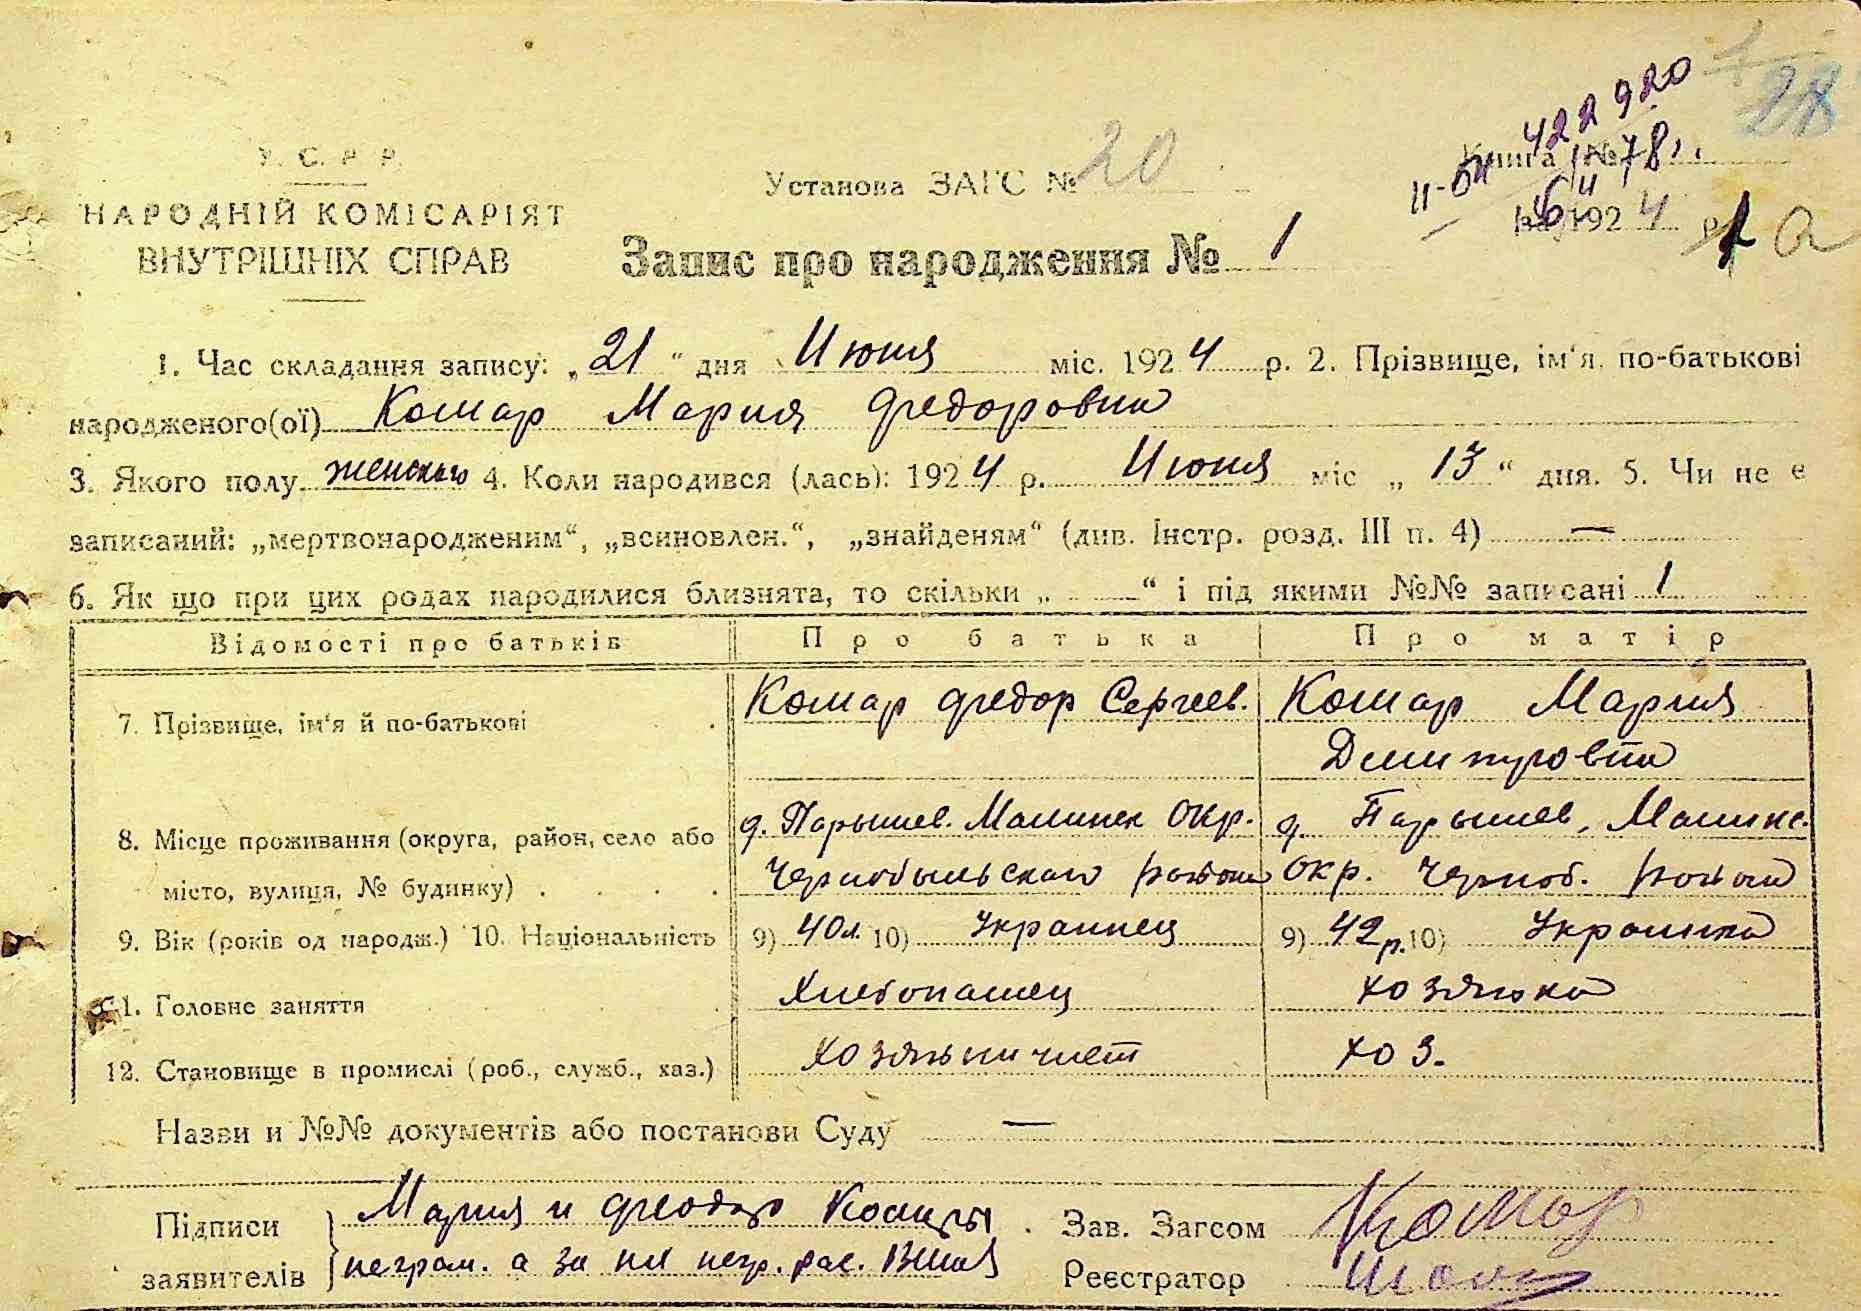 28
422920
У. С. Р. Р.
Установа ЗАГС № 20
Книга № 78
НАРОДНІЙ КОМІСАРІЯТ
ВНУТРІШНІХ СПРАВ
за 1924 р. 1 а
Запис про народження № 1
1. Час складання запису: „21“ дня Июня міс. 1924 р. 2. Прізвище, ім‘я, по-батькові
народженого(ої) Комар Мария Федоровна
3. Якого полу женскаго 4. Коли народився (лась): 1924 р. Июня міс „13“ дня. 5. Чи не є
записаний: „мертвонародженим“, „всиновлен.“, „знайденям“ (див. Інстр. розд. III п. 4) —
6. Як що при цих родах народилися близнята, то скільки „ — “ і під якими №№ записані 1
Відомості про батьків Про батька Про матір
7. Прізвище, ім‘я й по-батькові Комар Федор Сергеев. Комар Мария
Дмитровна
8. Місце проживання (округа, район, село або д. Парышев. Малинск Окр. д. Парышев, Малинс.
місто, вулиця, № будинку) . . . . Чернобыльскаго района Окр. Черноб. района
9. Вік (років од народж.) 10. Національність 9) 40 л. 10) Украинец 9) 42 р. 10) Украинка
11. Головне заняття Хлебопашец хозяйка
12. Становище в промислі (роб., служб., хаз.) Хозяйничает хоз.
Назви и №№ документів або постанови Суду —
Підписи Мария и Феодор Комары . Зав. Загсом Комар
заявителів неграм. а за них негр. рас. Реєстратор